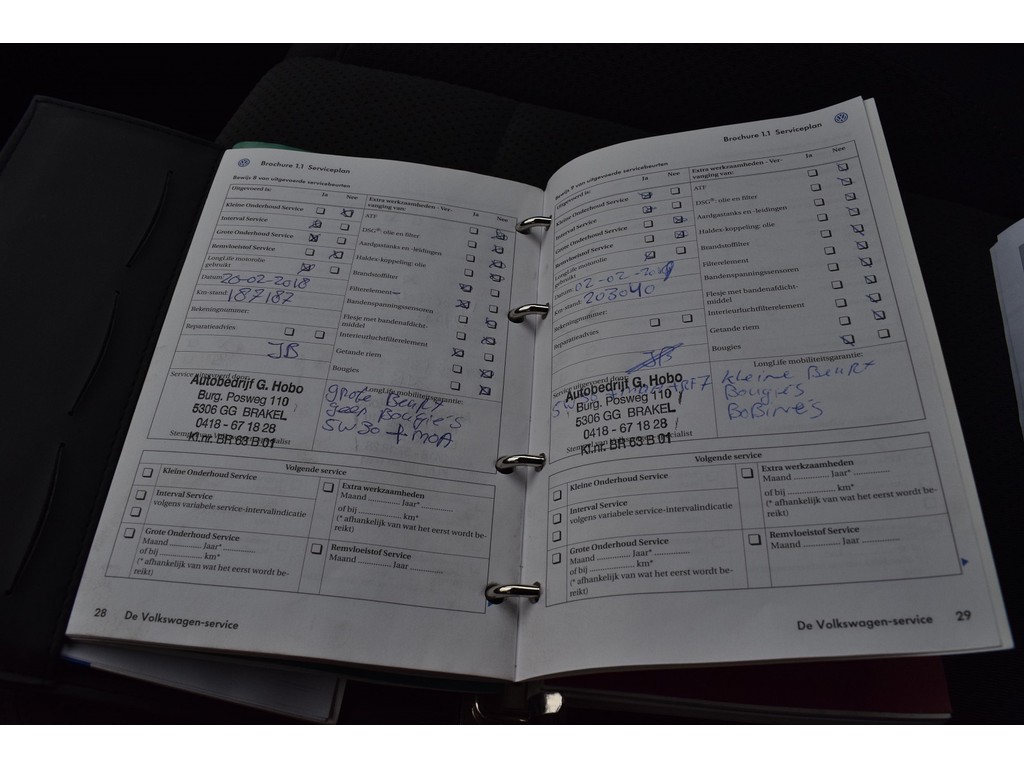 Brochure 1.1 Serviceplan
Bewijs 8 van uitgevoerde servicebeurten
Uitgevoerd is: Ja Nee
Kleine Onderhoud Service
Interval Service
Grote Onderhoud Service
Remvloeistof Service
LongLife motorolie
gebruikt
Datum: 20-02-2018
Km-stand: 187187
Rekeningnummer:
Reparatieadvies
JB
Extra werkzaamheden - Ver-
vanging van: Ja Nee
ATF
DSG®-olie en filter
Aardgastanks en -leidingen
Haldex-koppeling: olie
Brandstoffilter
Filterelement
Bandenspanningssensoren
Flesje met bandenafdicht-
middel
Interieurluchtfilterelement
Getande riem
Bougies
Service uitgevoerd door:
Autobedrijf G. Hobo
Burg. Posweg 110
5306 GG BRAKEL
0418 - 67 18 28
Kl.nr. BR 63 B 01
LongLife mobiliteitsgarantie:
grote Beurt
geen Bougie's
5W30 + MOA
Volgende service
Kleine Onderhoud Service
Interval Service
volgens variabele service-intervalindicatie
Grote Onderhoud Service
Maand ............ Jaar* ............
of bij ............ km*
(* afhankelijk van wat het eerst wordt be-
reikt)
Extra werkzaamheden
Maand ............ Jaar* ............
of bij ............ km*
(* afhankelijk van wat het eerst wordt be-
reikt)
Remvloeistof Service
Maand ............ Jaar ............
28 De Volkswagen-service
Brochure 1.1 Serviceplan
Bewijs 9 van uitgevoerde servicebeurten
Uitgevoerd is: Ja Nee
Kleine Onderhoud Service
Interval Service
Grote Onderhoud Service
Remvloeistof Service
LongLife motorolie
gebruikt
Datum: 02-02-2019
Km-stand: 203040
Rekeningnummer:
Reparatieadvies
JB
Extra werkzaamheden - Ver-
vanging van: Ja Nee
ATF
DSG®-olie en filter
Aardgastanks en -leidingen
Haldex-koppeling: olie
Brandstoffilter
Filterelement
Bandenspanningssensoren
Flesje met bandenafdicht-
middel
Interieurluchtfilterelement
Getande riem
Bougies
Service uitgevoerd door:
Autobedrijf G. Hobo
Burg. Posweg 110
5306 GG BRAKEL
0418 - 67 18 28
Kl.nr. BR 63 B 01
LongLife mobiliteitsgarantie:
kleine Beurt
Bougie's
BoBine's
Volgende service
Kleine Onderhoud Service
Interval Service
volgens variabele service-intervalindicatie
Grote Onderhoud Service
Maand ............ Jaar* ............
of bij ............ km*
(* afhankelijk van wat het eerst wordt be-
reikt)
Extra werkzaamheden
Maand ............ Jaar* ............
of bij ............ km*
(* afhankelijk van wat het eerst wordt be-
reikt)
Remvloeistof Service
Maand ............ Jaar ............
De Volkswagen-service 29